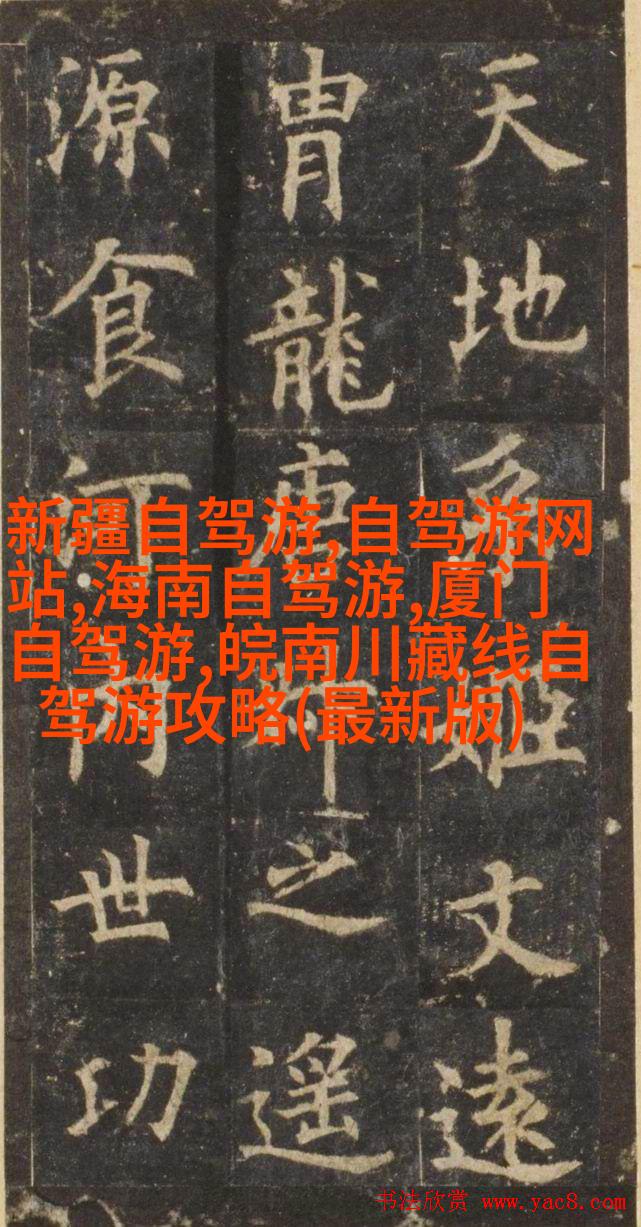 天地姬文遠
胄龍之遥
源食世功
新疆自驾游,自驾游网
站,海南自驾游,厦门
自驾游,皖南川藏线自
驾游攻略(最新版)
书法欣赏 www.yac8.com